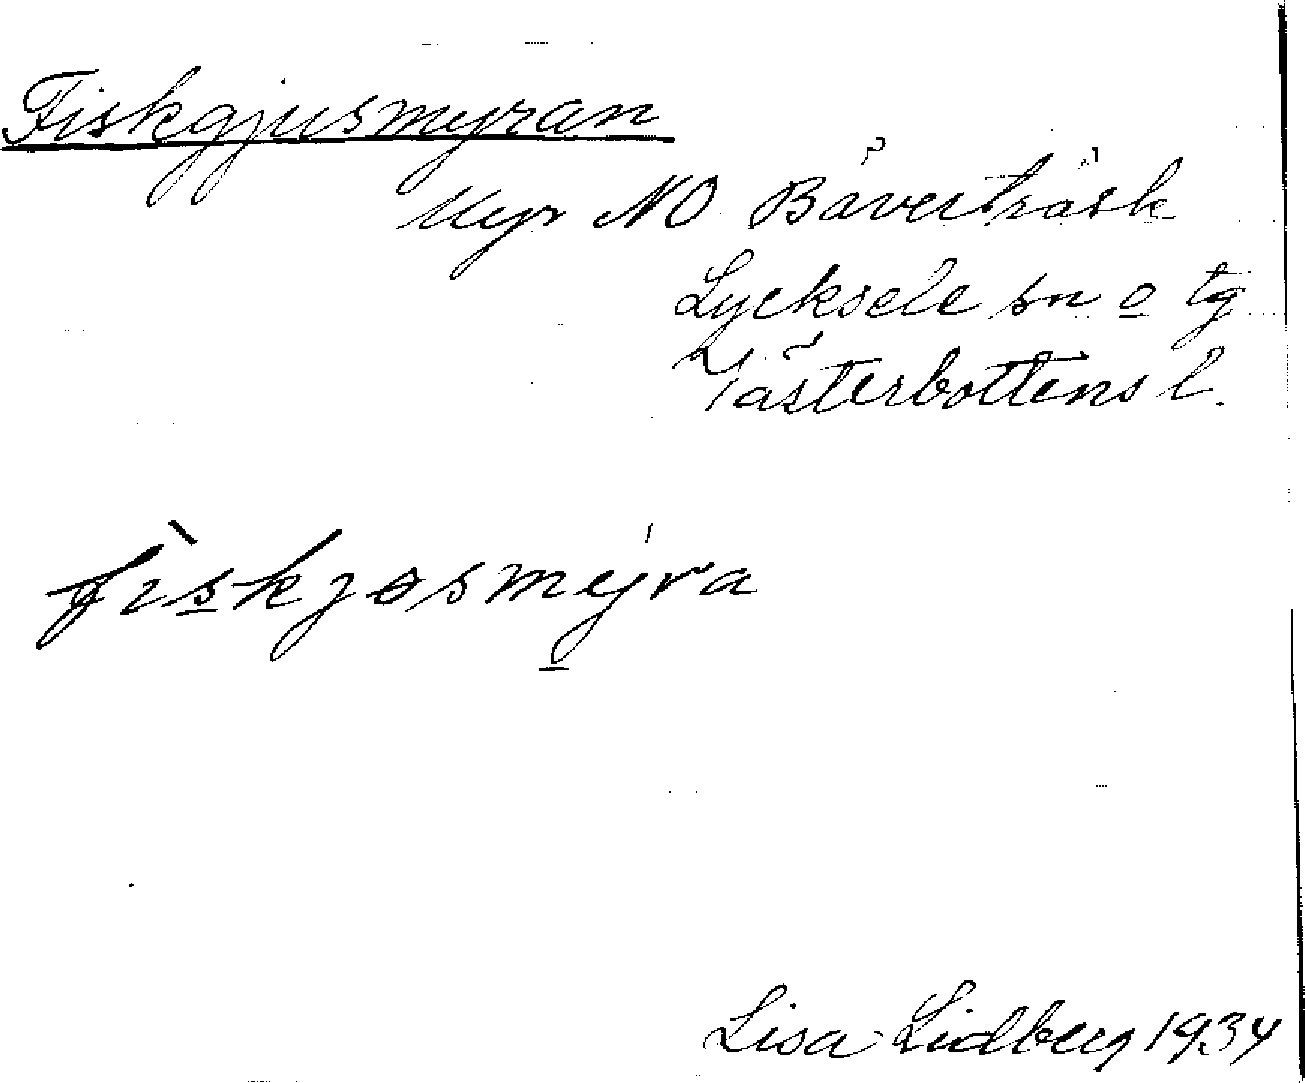 Fiskgjusmyran
Myr NO Bäverträsk
Lycksele sn o tg
Västerbottens l.
fìskjɵsmy̱ra
Lisa Lidberg 1934